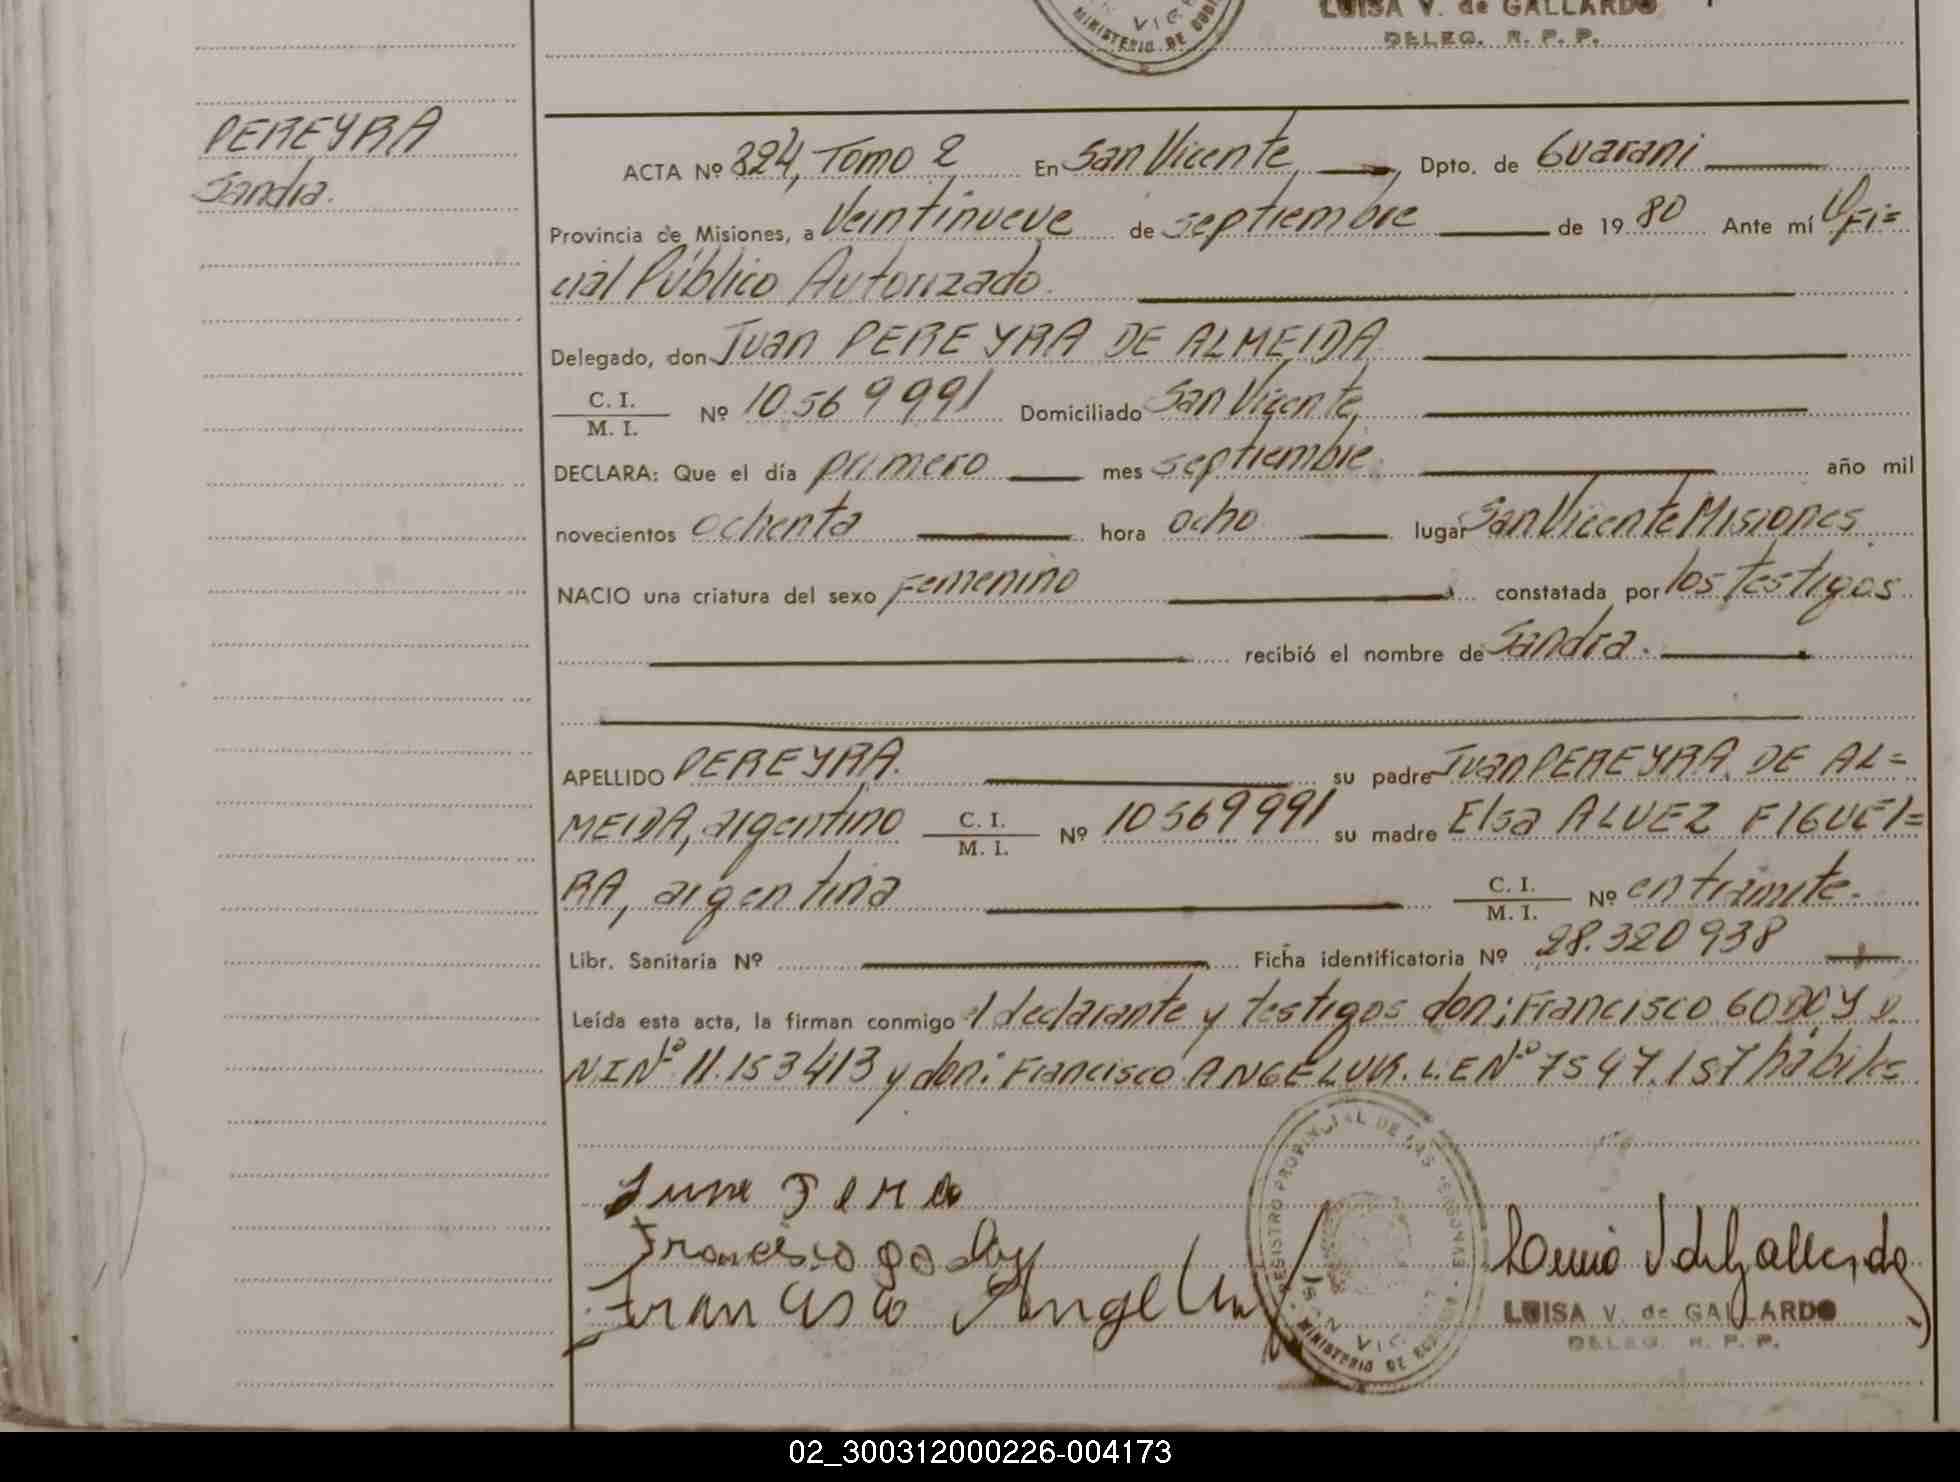 MINISTERIO DE GOBI
LUISA V. de GALLARDO
DELEG. R. P. P.
PEREYRA
Sandra.
ACTA Nº 324, Tomo 2 En San Vicente, Dpto. de Guarani
Provincia de Misiones, a Veintinueve de septiembre de 1980 Ante mí Ofi=
cial Público Autorizado.
Delegado, don Juan PEREYRA DE ALMEIDA
C. I. / M. I. Nº 10 569 991 Domiciliado San Vicente,
DECLARA: Que el día primero mes septiembre. año mil
novecientos ochenta hora ocho lugar San Vicente Misiones
NACIO una criatura del sexo Femenino constatada por los testigos
recibió el nombre de Sandra.
APELLIDO PEREYRA. su padre Juan PEREYRA DE AL=
MEIDA, argentino C. I. / M. I. Nº 10 569 991 su madre Elsa ALVEZ FIGUEI=
RA, argentina C. I. / M. I. Nº en trámite.
Libr. Sanitaria Nº Ficha identificatoria Nº 28.320 938
Leída esta acta, la firman conmigo el declarante y testigos don; Francisco GODOY D
NI Nº 11.153413 y don: Francisco ANGELUK. L.E Nº 7547.157 hábiles
REGISTRO PROVINCIAL DE LAS PERSONAS
Francisco godoy
Francisco
LUISA V. de GALLARDO
DELEG. R. P. P.
MINISTERIO DE
02_300312000226-004173